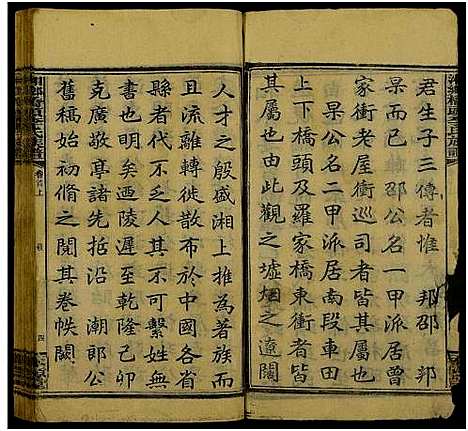 君生子三傳者惟大邦邵邦
杲而已韓邵公名一甲派居曾
家衝老屋衝巡司者皆其屬也
杲公名二甲派居南段車田
下橋頭及羅家橋東衝者皆
其屬也由此觀之墟烟之遼闊
人才之殷盛湘上推為著族而
且流離轉徙散布於中國各省
縣者代不乏人其不可繫姓無
書也明矣迺陵遲至乾隆己卯
克廣敬亭諸先括沿潮郎公
舊稿始初脩之閱其卷帙闕
卷首上
四